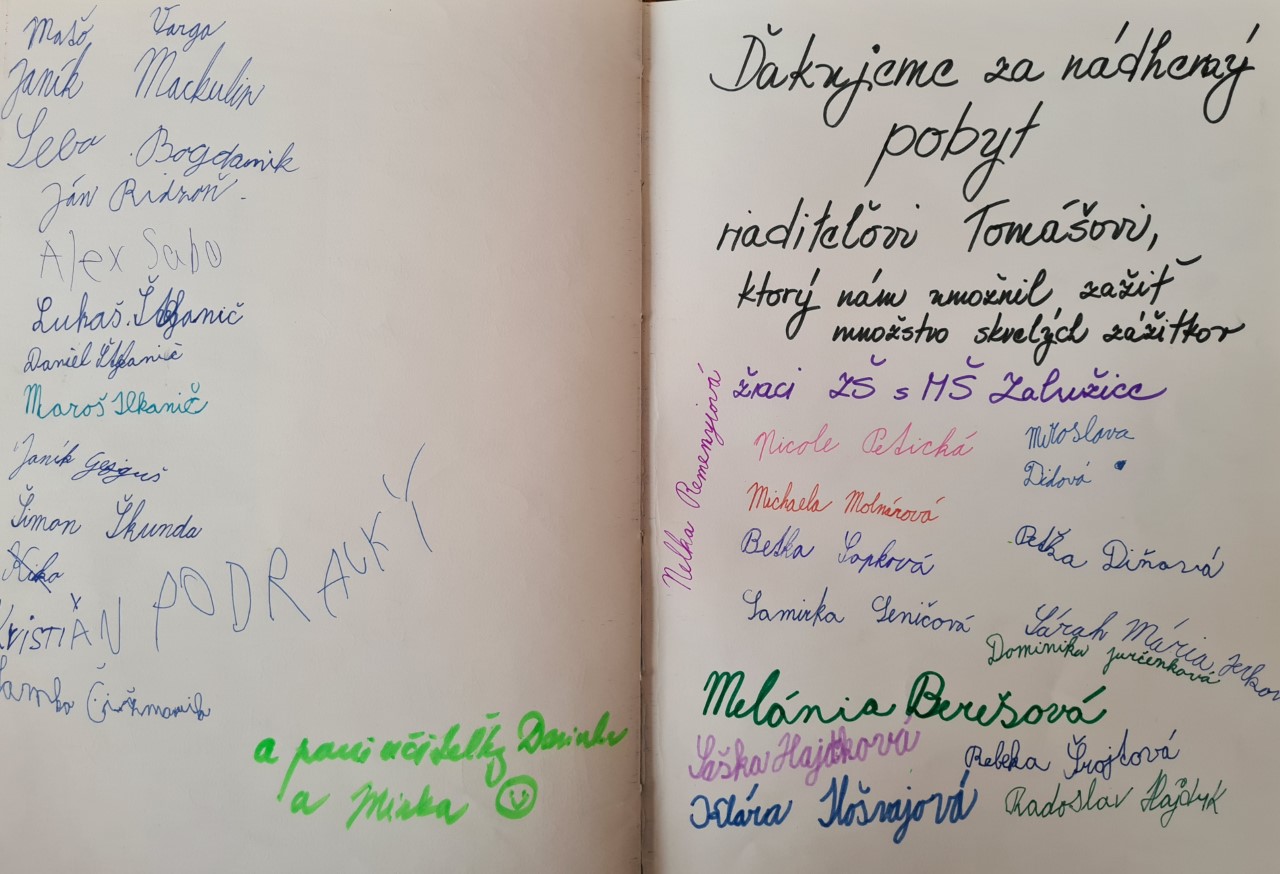 Mašo Varga
Janík Mackulin
Sebo Bogdanik
Ján Ridzoň.
Alex Sabo
Lukáš Štefanič
Daniel Štefanič
Maroš Ilkanič
Janík
Šimon Škunda
Kiko
KRISTIÁN PODRACKÝ
Samko Čižmarik
a pani učiteľky Darinka
a Mirka
Ďakujeme za nádherný
pobyt
riaditeľovi Tomášovi,
ktorý nám umožnil zažiť
množstvo skvelých zážitkov
žiaci ZŠ s MŠ Zalužice
Nelka Remenyiová
Nicole Petická
Miroslava
Didová
Michaela Molnárová
Betka Sopková
Peťka Diňová
Samirka Seničová
Sárah Mária
Dominika Jurčenková
Melánia Berešová
Saška Hajdková
Rebeka Šrojtová
Klára Hošvajová
Radoslav Hajdyk